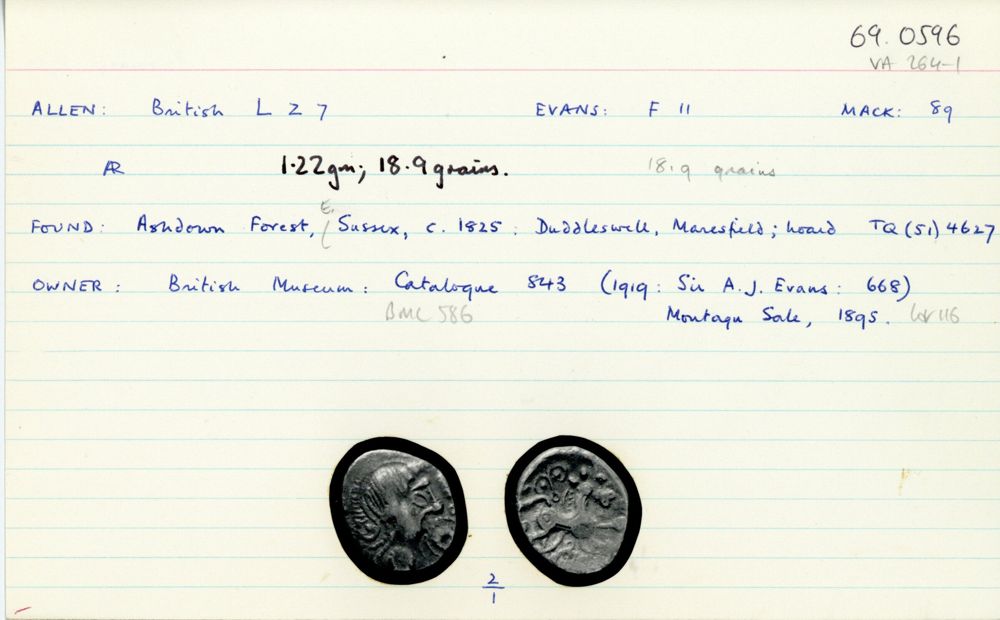 69.0596
VA 264-1
ALLEN: British L Z 7 EVANS: F 11 MACK: 89
AR 1.22gm; 18.9 grains. 18.9 grains
E.
FOUND: Ashdown Forest, Sussex, c. 1825: Duddleswell, Maresfield; hoard TQ (51) 4627
OWNER: British Museum: Catalogue 843 (1919: Sir A.J. Evans: 668)
BMC 586 Montagu Sale, 1895. lot 116
2
1